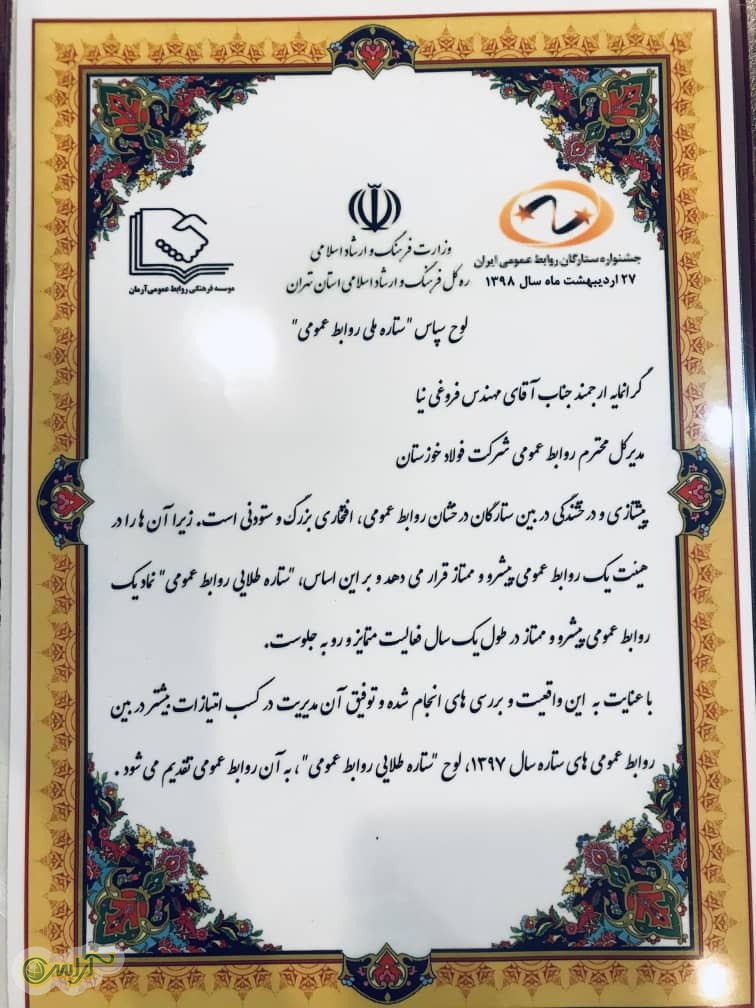 جشنواره ستارگان روابط عمومی ایران
۲۷ اردیبهشت ماه سال ۱۳۹۸
وزارت فرهنگ و ارشاد اسلامی
ره کل فرهنگ و ارشاد اسلامی استان تهران
موسسه فرهنگی روابط عمومی آرمان
لوح سپاس "ستاره ملی روابط عمومی"
گرانمایه ارجمند جناب آقای مهندس فروغی نیا
مدیرکل محترم روابط عمومی شرکت فولاد خوزستان
پیشتازی و درخشندگی در بین ستارگان درخشان روابط عمومی، افتخاری بزرگ و ستودنی است. زیرا آن ها را در
هیئت یک روابط عمومی پیشرو و ممتاز قرار می دهد و بر این اساس، "ستاره طلایی روابط عمومی" نماد یک
روابط عمومی پیشرو و ممتاز در طول یک سال فعالیت متمایز و رو به جلوست.
با عنایت به این واقعیت و بررسی های انجام شده و توفیق آن مدیریت در کسب امتیازات بیشتر در بین
روابط عمومی های ستاره سال ۱۳۹۷، لوح "ستاره طلایی روابط عمومی"، به آن روابط عمومی تقدیم می شود.